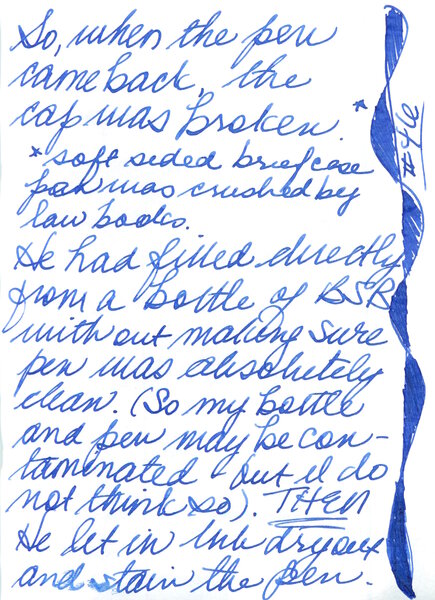 So, when the pen
came back, the
cap was broken. *
* soft sided briefcase
pak was crushed by
law books.
He had filled directly
from a bottle of BSB
without making sure
pen was absolutely
clean. (So my bottle
and pen may be con-
taminated - but I do
not think so). THEN
He let in ink dryout
and stain the pen.
#46